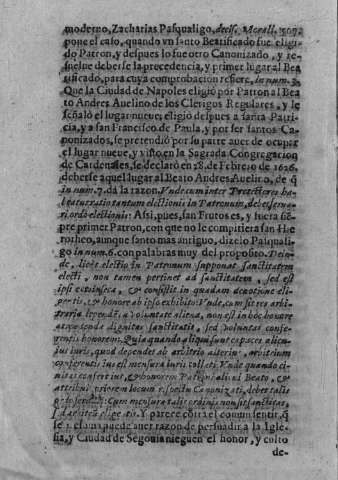 moderno, Zacharias Pasqualigo, decis. Morali. 309?
pone el caso, quando vn santo Beatificado fue eligi-
do Patron, y despues lo fue otro Canonizado, y re-
suelue deberse la precedencia, y primer lugar al Bea
tificado, para cuya comprobacion refiere, in num. 3.
Que la Ciudad de Napoles eligiò por Patron al Bea
to Andres Auelino de los Clerigos Regulares, y le
señalò el lugar nueue; eligiò despues a santa Patri-
cia, y a san Francisco de Paula, y por ser santos Ca-
nonizados, se pretendiò por su parte auer de ocupar
el lugar nueue, y visto en la Sagrada Congregacion
de Cardenales, se declarò en 28. de Febrero de 1626.
deberse aquel lugar al Beato Andres Auelino, de q̃
in num. 7. dà la razon. Vnde cum inter Protectores ha-
beatur ratio tantum electionis in Patronum, debet serua-
ri ordo electionis: Assi, pues, san Frutos es, y fuera siẽ-
pre primer Patron, con que no le compitiera san Hie
rotheo, aunque santo mas antiguo, dizelo Pasquali-
go in num. 6. con palabras muy del proposito. Dein-
de, licèt electio in Patronum supponat sanctitatem
electi, non tamen pertinet ad sanctitatem, sed est
ipsi extrinseca, & consistit in quadam deuotione eli-
gentis, & honore ab ipso exhibito: Vnde, cum sit res arbi-
traria dependẽs à voluntate aliena, non est in hoc honore
attendenda dignitas sanctitatis, sed voluntas confe-
rentis honorem. Quia quando aliqui sunt capaces alicu-
ius iuris, quod dependet ab arbitrio alterius, arbitrium
conferentis ius est mensura iuris collati: Vnde quando ci-
uitas confert ius, & honorem Patronatus Beato, &
attribuit priorem locum respectu Canonizati, debet talis
Cum mensura talis ordinis non sit sanctitas,
Y parece contra el comun sentir, q̃
razon de persuadir a la Igle-
sia, y Ciudad de Segouia nieguen el honor, y culto
de-